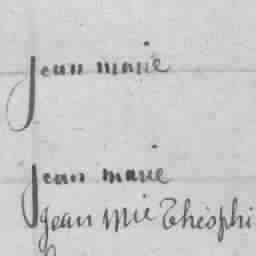 jean marie
jean marie
jean mie Théophi